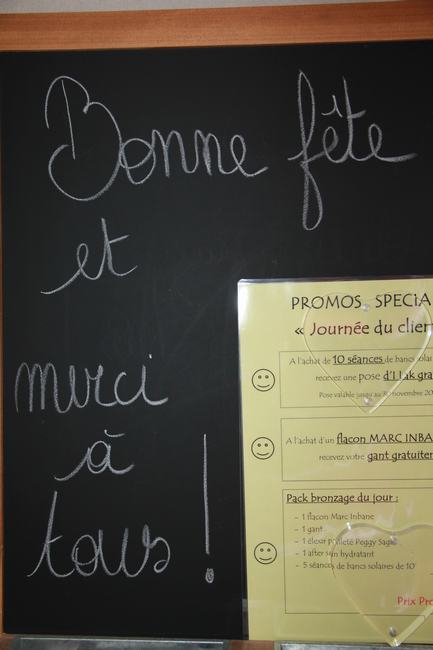 Bonne fête
et
merci
à
tous !
PROMOS SPECIA
« Journée du clien
A l'achat de 10 séances de bancs solai
recevez une pose d'1 Lak gra
Pose valable jusqu'au 30 novembre 20
A l'achat d'un flacon MARC INBA
recevez votre gant gratuitem
Pack bronzage du jour :
- 1 flacon Marc Inbane
- 1 gant
- 1 élixir pailleté Peggy Sage
- 1 after sun hydratant
- 5 séances de bancs solaires de 10'
Prix Pro